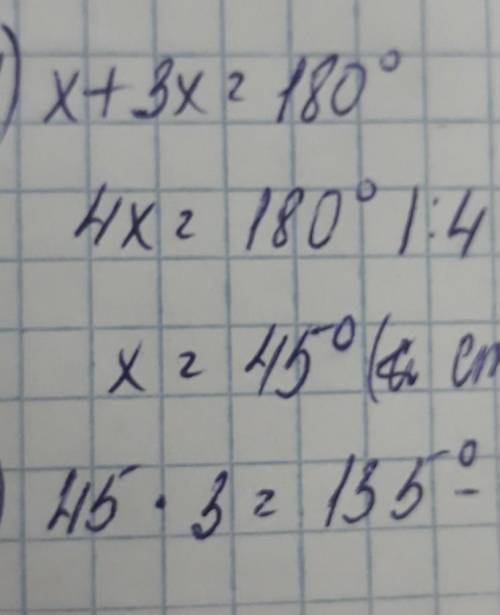 ) x + 3x = 180°
4x = 180° | : 4
x = 45° (
) 45 · 3 = 135° -